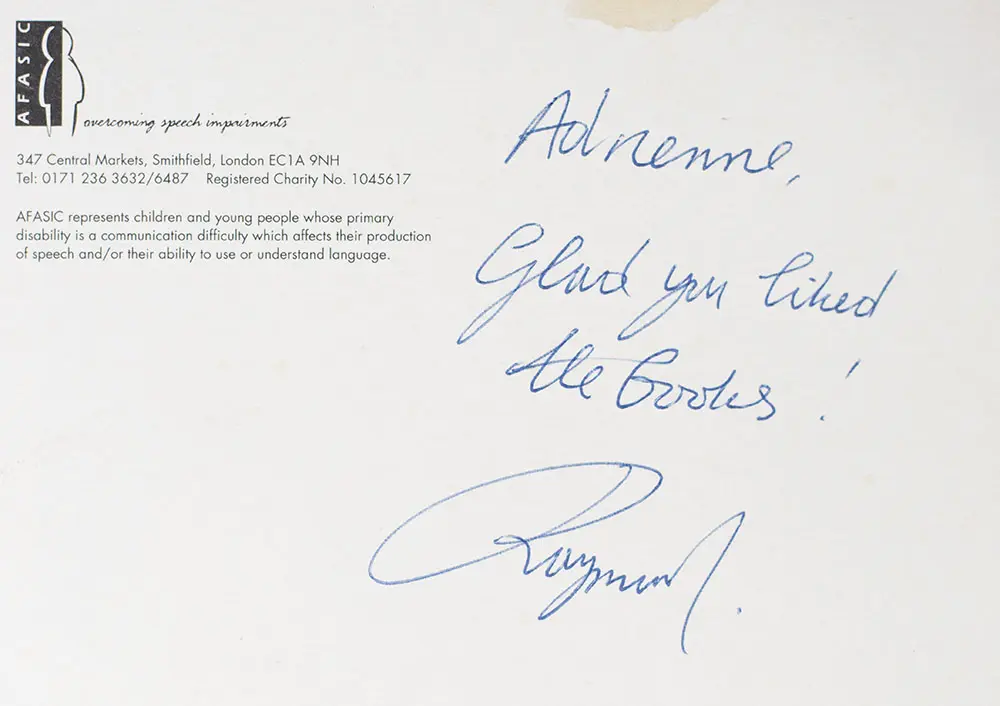 AFASIC
overcoming speech impairments
347 Central Markets, Smithfield, London EC1A 9NH
Tel: 0171 236 3632/6487 Registered Charity No. 1045617
AFASIC represents children and young people whose primary
disability is a communication difficulty which affects their production
of speech and/or their ability to use or understand language.
Adrienne,
Glad you liked
the books!
Raymond.